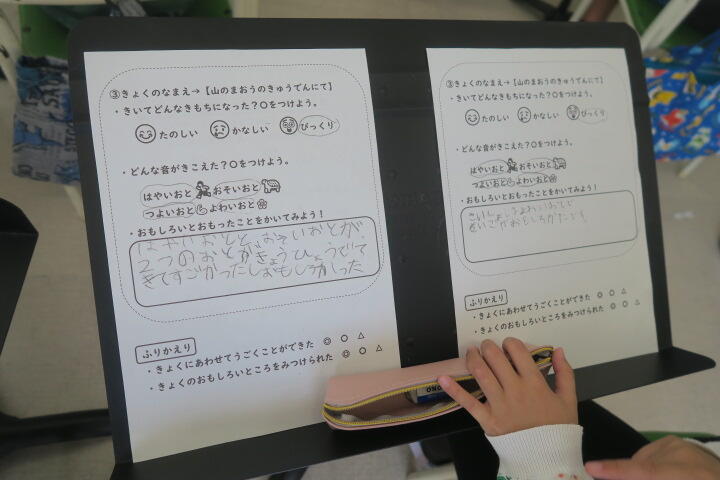 ③きょくのなまえ→【山のまおうのきゅうでんにて】
・きいてどんなきもちになった？○をつけよう。
たのしい かなしい びっくり
・どんな音がきこえた？○をつけよう。
はやいおと おそいおと
つよいおと よわいおと
・おもしろいとおもったことをかいてみよう！
はやいおとと、おそいおとが
2つのおとが、きょうひょうどて
きてすごかったしおもしろかった
ふりかえり
・きょくにあわせてうごくことができた ◎ ○ △
・きょくのおもしろいところをみつけられた ◎ ○ △
③きょくのなまえ→【山のまおうのきゅうでんにて】
・きいてどんなきもちになった？○をつけよう。
たのしい かなしい びっくり
・どんな音がきこえた？○をつけよう。
はやいおと おそいおと
つよいおと よわいおと
・おもしろいとおもったことをかいてみよう！
さいしょ
さいごがおもしろかたです
ふりかえり
・きょくにあわせてうごくことができた ◎ ○ △
・きょくのおもしろいところをみつけられた ◎ ○ △